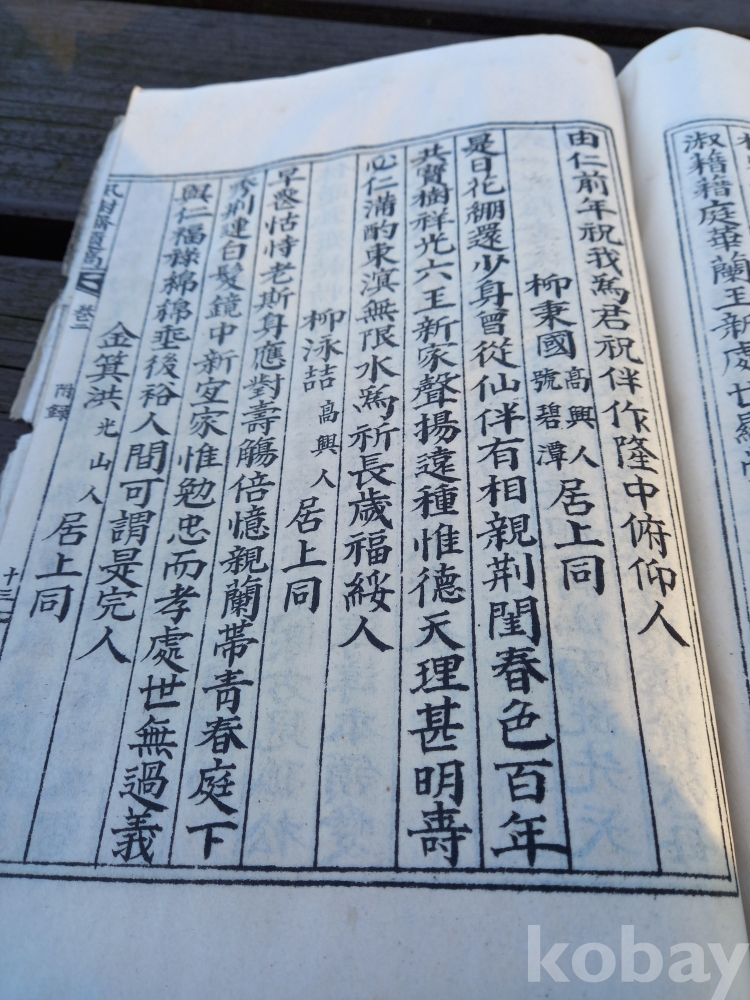 淑籍籍庭華蘭王新處世羅
由仁前年祝我為君祝伴作隆中俯仰人
柳秉國 高興人 號碧潭 居上同
是日花綳還少身曾從仙伴有相親荆閨春色百年
共寶樹祥光六王新家聲揚遠種惟德天理甚明壽
必仁滿酌東溟無限水為祈長歲福綏人
柳泳喆 高興人 居上同
早罄怙恃老斯身應對壽觴倍憶親蘭蔕青春庭下
荆連白髮鏡中新宜家惟勉忠而孝處世無過義
與仁福祿綿綿垂後裕人間可謂是完人
金箕洪 光山人 居上同
卷二 附錄 十三
kobay